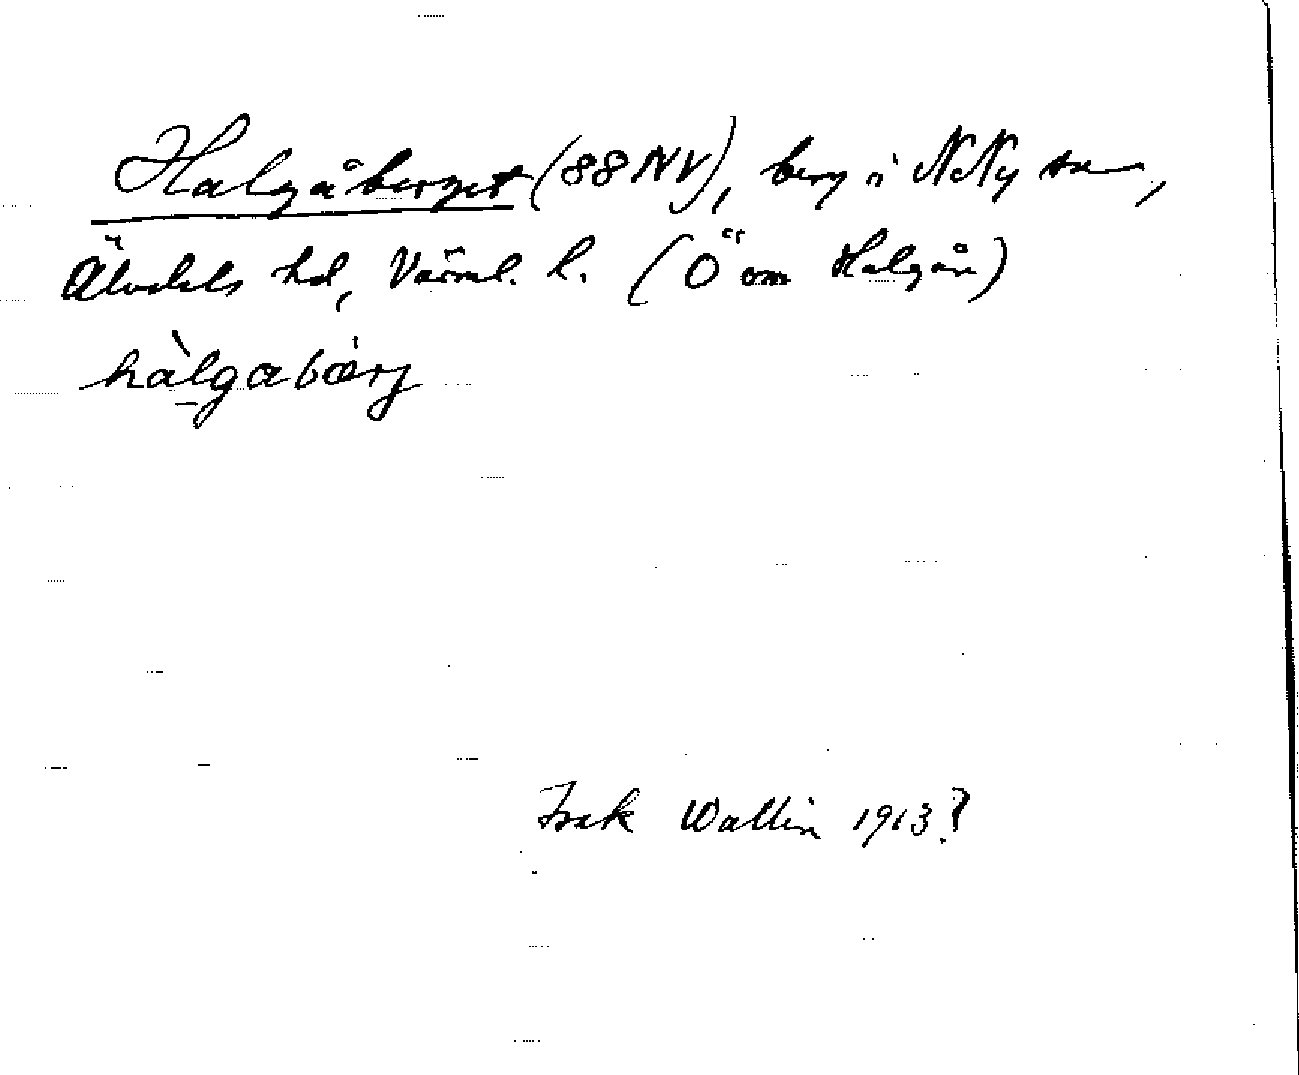 Halgåberget (88 NV), berg i N Ny sn,
Älvdals hd, Värml. l. (Ö om Halgån)
hàlgabærj
Isak Wallin 1913?